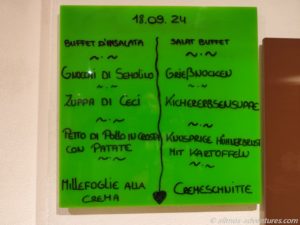 18.09.24
BUFFET D'INSALATA
SALAT BUFFET
GNOCCHI DI SEMOLINO
GRIEßNOCKEN
ZUPPA DI CECI
KICHERERBSENSUPPE
PETTO DI POLLO IN CROSTA
CON PATATE
KNUSPRIGE HÜHNERBRUST
MIT KARTOFFELN
MILLEFOGLIE ALLA
CREMA
CREMESCHNITTE